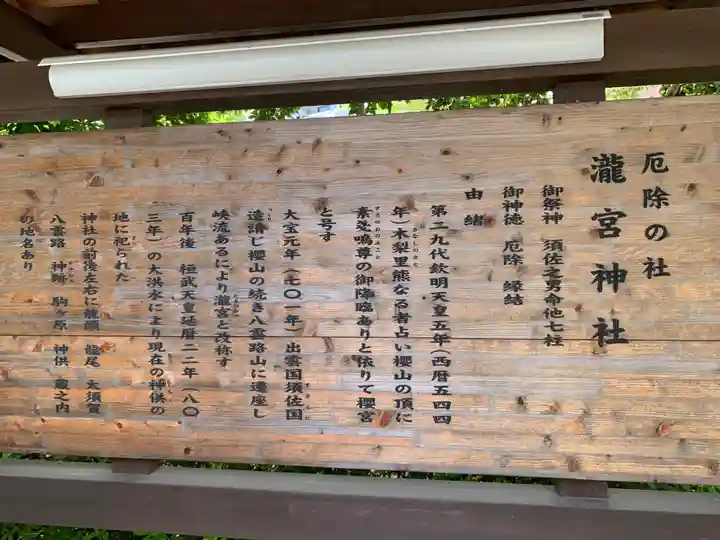 厄除の社
瀧宮神社
御祭神 須佐之男命他七柱
御神徳 厄除 縁結
由緒
第二九代欽明天皇五年(西暦五四四
年)木梨里熊なる者占い櫻山の頂に
素戔嗚尊の御降臨ありと依りて櫻宮
と号す
大宝元年(七〇一年)出雲国須佐国
造請じ櫻山の続き八雲路山に遷座し
峡流あるにより瀧宮と改称す
百年後 桓武天皇延暦二二年(八〇
三年)の大洪水により現在の神供の
地に祀られた
神社の前後左右に龍頭 龍尾 大須賀
八雲路 神 駒ヶ原 神供 蔵之内
の地名あり